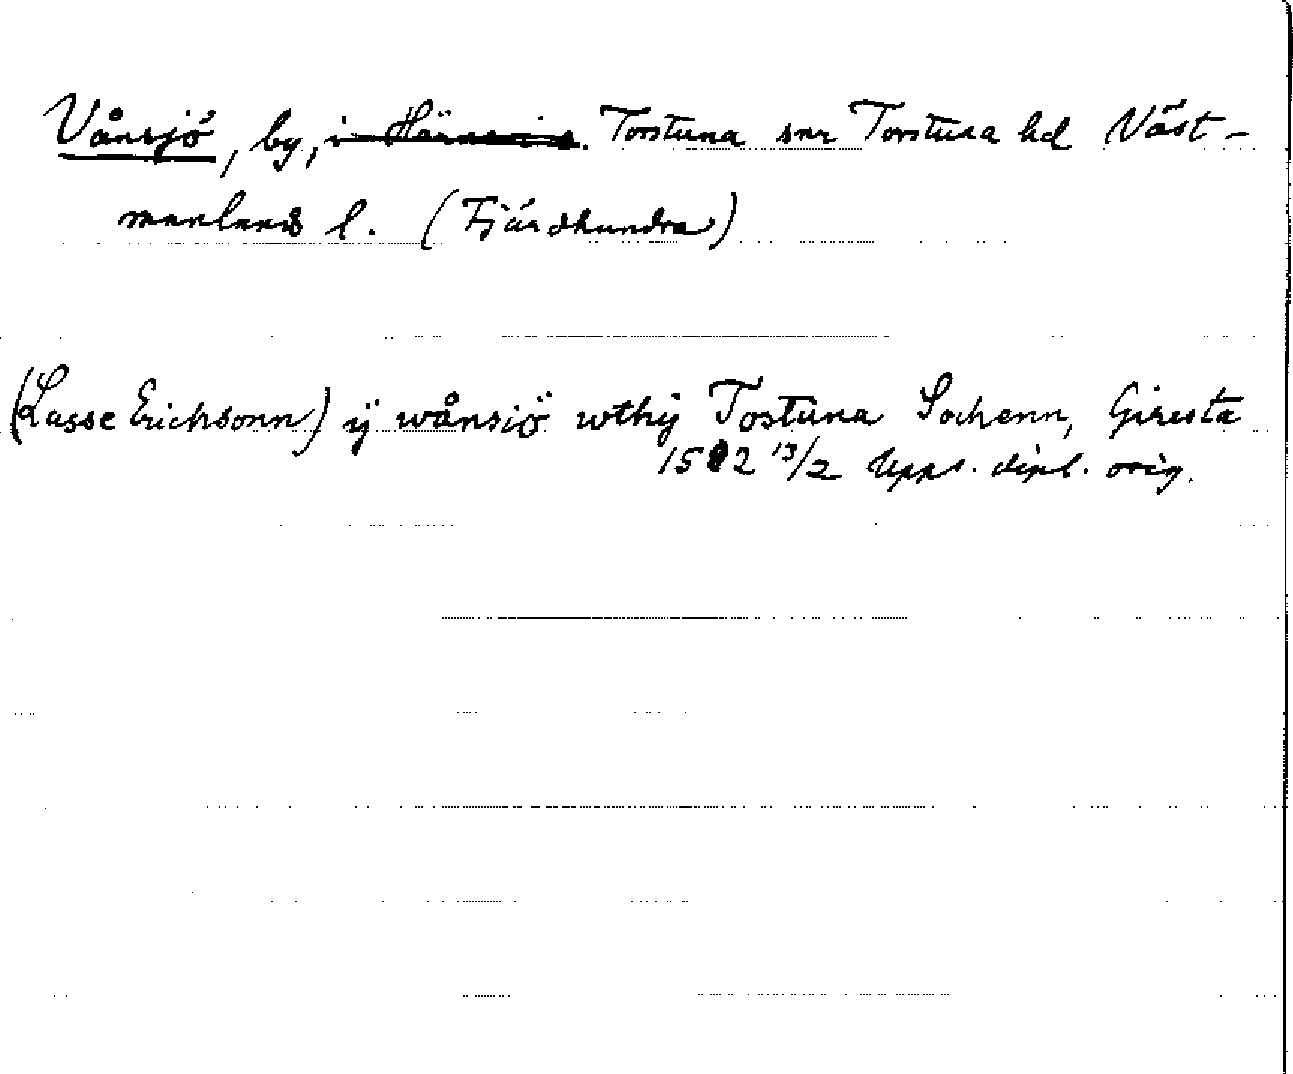 Vånsjö, by, Torstuna snr Torstuna hd Väst-
manlands l. (Fjärdhundra)
(Lasse Erichsonn) ÿ wånsiö wthÿ Tostuna Sochenn, Giresta
13/2 Upps. dipl. orig.